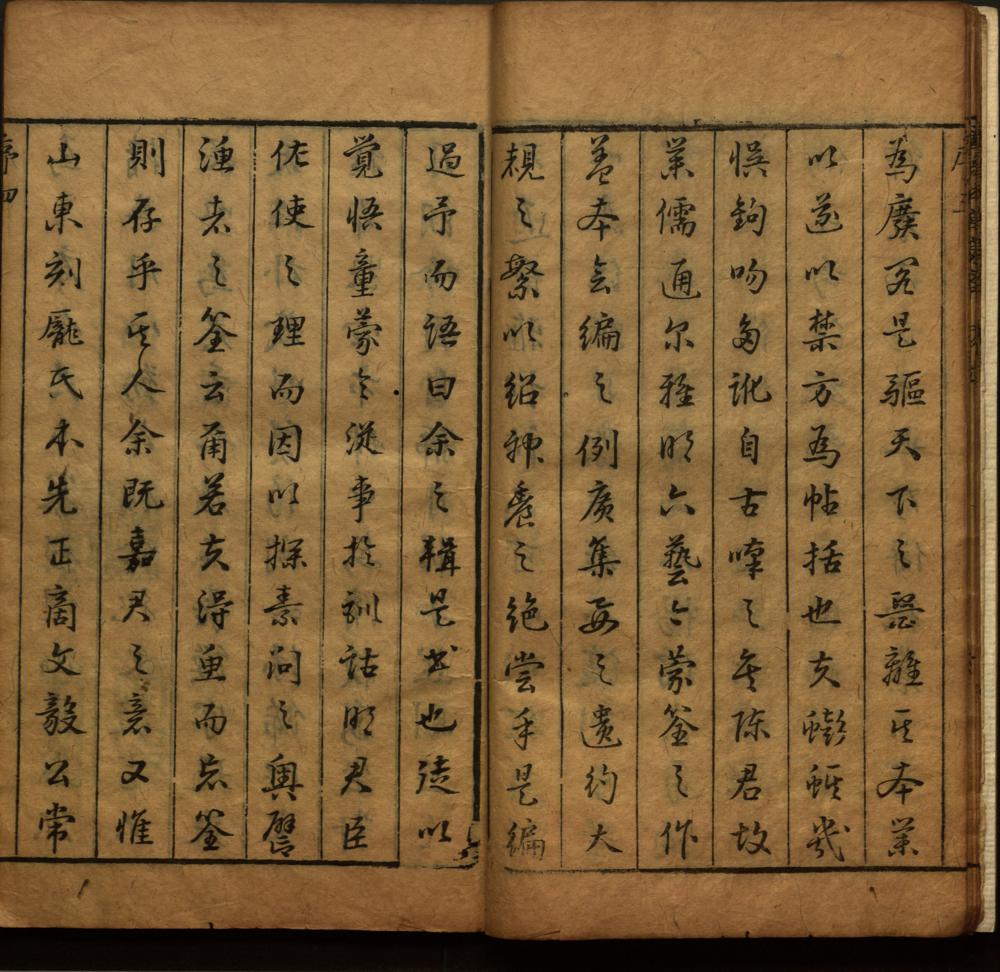 為廣若是驅天下之毉離其本業
以遂以禁方為帖括也夫蟛蜞幾
悮鉤吻多訛自古嘆之矣陳君故
業儒通尔雅明六藝今蒙筌之作
盖本會編之例廣集要之遺約大
規之繁以紹神農之絶嘗手是編
過予而語曰余之輯是書也徒以
覺悟童蒙令從事於訓詁明君臣
佐使之理而因以探素問之奧譬
漁者之筌云爾若夫得魚而忘筌
則存乎其人余既嘉君之意又惟
山東刻龐氏本先正商文毅公常
序四